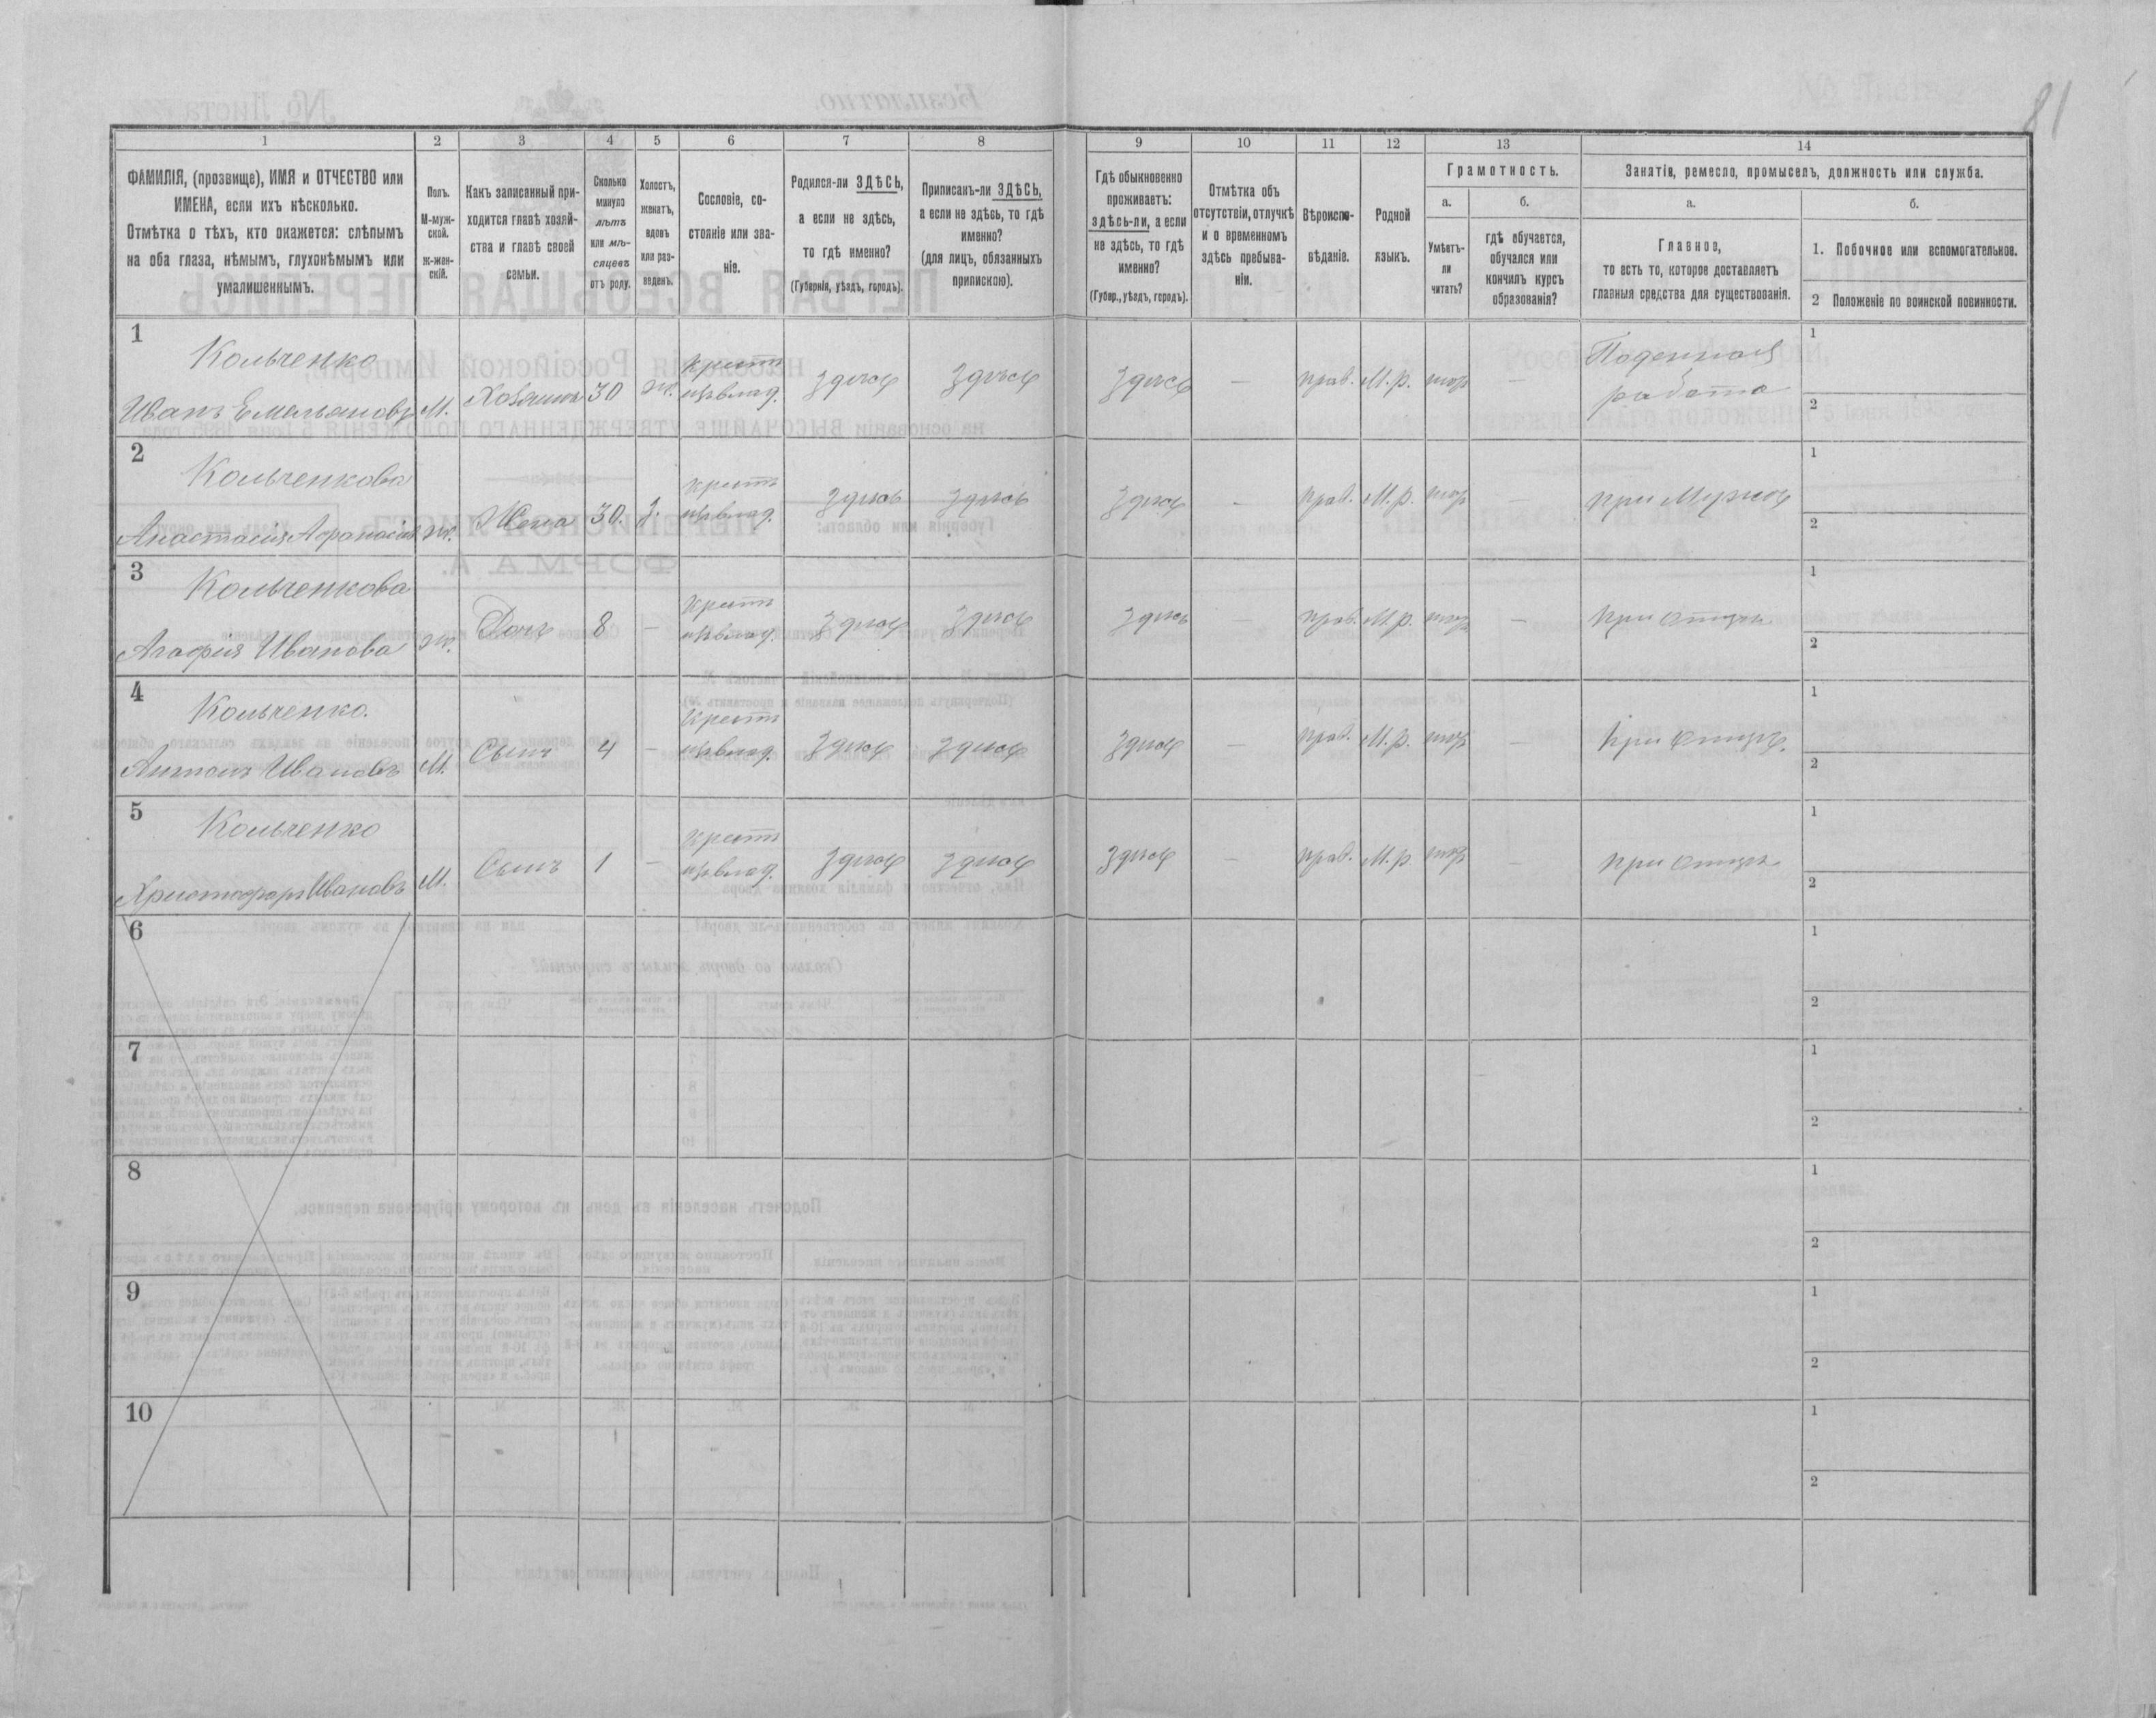 81
1 2 3 4 5 6 7 8 9 10 11 12 13 14
ФАМИЛІЯ, (прозвище), ИМЯ и ОТЧЕСТВО или
ИМЕНА, если ихъ нѣсколько.
Отмѣтка о тѣхъ, кто окажется: слѣпымъ
на оба глаза, нѣмымъ, глухонѣмымъ или
умалишеннымъ.
Полъ.
М-муж-
ской.
ж-жен-
скій.
Какъ записанный при-
ходится главѣ хозяй-
ства и главѣ своей
семьи.
Сколько
минуло
лѣтъ
или мѣ-
сяцевъ
отъ роду.
Холостъ,
женатъ,
вдовъ
или раз-
веденъ.
Сословіе, со-
стояніе или зва-
ніе.
Родился-ли ЗДѢСЬ,
а если не здѣсь,
то гдѣ именно?
(Губернія, уѣздъ, городъ).
Приписанъ-ли ЗДѢСЬ,
а если не здѣсь, то гдѣ
именно?
(для лицъ, обязанныхъ
припискою).
Гдѣ обыкновенно
проживаетъ:
здѣсь-ли, а если
не здѣсь, то гдѣ
именно?
(Губер., уѣздъ, городъ).
Отмѣтка объ
отсутствіи, отлучкѣ
и о временномъ
здѣсь пребыва-
ніи.
Вѣроиспо-
вѣданіе.
Родной
языкъ.
Грамотность.
а.
Умѣетъ-
ли
читать?
б.
гдѣ обучается,
обучался или
кончилъ курсъ
образованія?
Занятія, ремесло, промыселъ, должность или служба.
а.
Главное,
то есть то, которое доставляетъ
главныя средства для существованія.
б.
1. Побочное или вспомогательное.
2 Положеніе по воинской повинности.
1
Кольченко
Иванъ Емельяновъ М. Хозяинъ 30 ж. крест. здѣсь здѣсь здѣсь — прав. М. р. — Поденная
работа
1
2
2
Кольченкова
Анастасія Ж. Жена 30. з. крест. здѣсь здѣсь здѣсь — прав. М. р. — при Мужѣ
1
2
3
Кольченкова
Агафія Иванова ж. Дочь 8 — крест. здѣсь здѣсь здѣсь — прав. М. р. — при отцѣ
1
2
4
Кольченко.
Антонъ Ивановъ М. Сынъ 4 — крест. здѣсь здѣсь здѣсь — прав. М. р. — при отцѣ.
1
2
5
Кольченко
Христофоръ Ивановъ М. Сынъ 1 — крест. здѣсь здѣсь здѣсь — прав. М. р. — при отцѣ
1
2
6
1
2
7
1
2
8
1
2
9
1
2
10
1
2